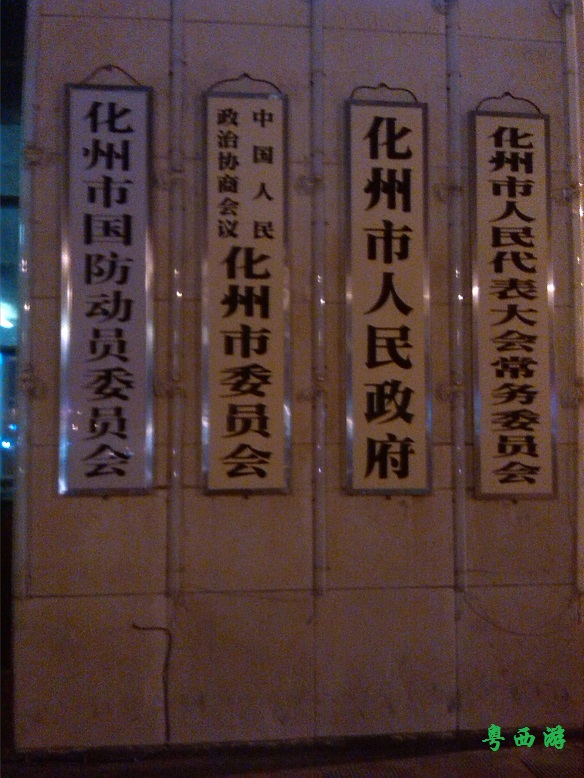 化州市人民代表大会常务委员会
化州市人民政府
中国人民
政治协商会议
化州市委员会
化州市国防动员委员会
粤西游